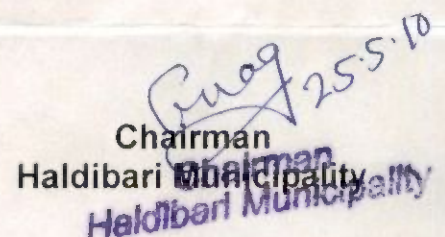 25.5.10
Chairman
Haldibari Municipality
Chairman
Haldibari Municipality